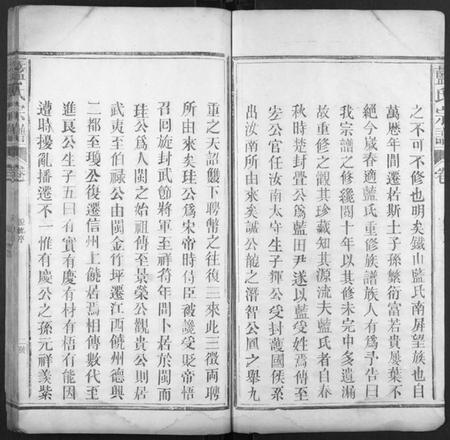 藍氏宗譜
卷
之不可不修也明矣鐵山藍氏南屏望族也自
萬厯年間遷若斯土子孫繁衍富若貴屢葉不
絕今歲春適藍氏重修族譜族人有爲予告曰
我宗譜之修纔閱十年以其修未完中多遺漏
故重修之觀其珍藏知其源流大藍氏者自春
秋時楚封亹公爲藍田尹遂以藍受姓焉傳至
公官任汝南太守生子揮公受封護國侯系
出汝南所由來矣諴公龍之潛智公鳳之舉九
重之天詔雙下聘幣之往復三來此三徵兩聘
所由來矣珪公爲宋帝時侍臣被讒受貶帝悟
召回旋封武節將軍至祥符年間卜居於閩而
珪公爲人閩之始祖傳至景榮公觀貴公則居
武夷至伯祿公由閩金竹坪遷江西饒州德興
二都至瓊公復遷信州上饒居焉相傳數代至
進良公生子五曰有實有慶有材有梧有能因
遭時擾亂播遷不一惟有慶公之孫元祥羙紫
藍氏宗譜
卷